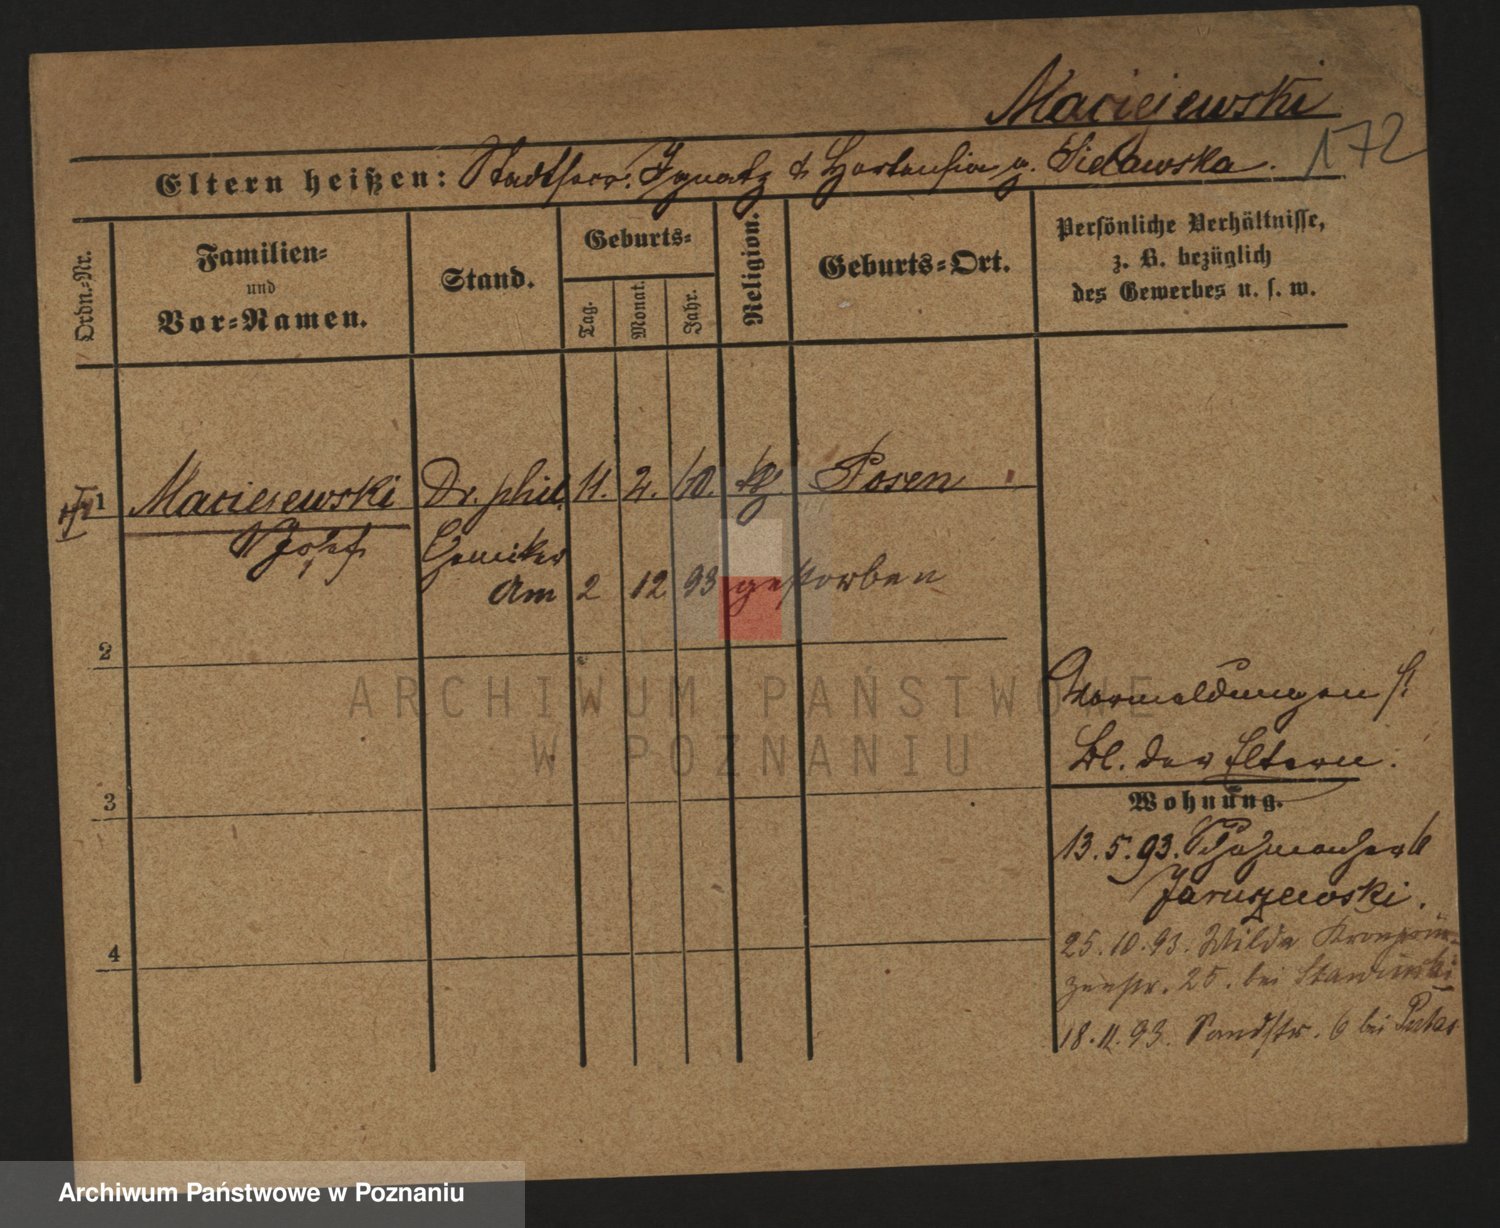 Maciejewski
172
Eltern heißen: Stadtsecr. Ignatz & Hortensia g. Sielawska.
Ordn.-Nr.
Familien-
und
Vor-Namen.
Stand.
Geburts-
Tag.
Monat.
Jahr.
Religion.
Geburts-Ort.
Persönliche Verhältnisse,
z. B. bezüglich
des Gewerbes u. s. w.
1 Maciejewski Dr. phil. 11. 2. 60. Posen
Josef Chemiker
Am 2 12 93 gestorben
2
ARCHIWUM PAŃSTWOWE
W POZNANIU
Vormeldungen s.
Bl. der Eltern.
3
Wohnung.
13.5.93. 6
Jaruszewski.
4
25.10.93. Wilda Kronprin-
zenstr. 25. bei
18.11.93. Sandstr. 6 bei
Archiwum Państwowe w Poznaniu